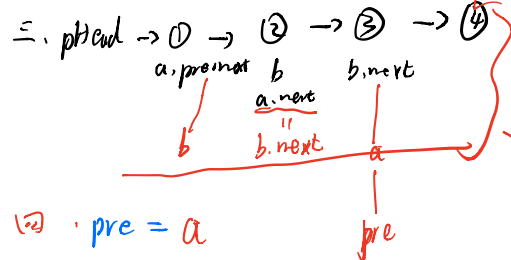 三. pHead → ① → ② → ③ → ④
a.pre.next b b.next
a.next
b b.next a
四 . pre = a pre